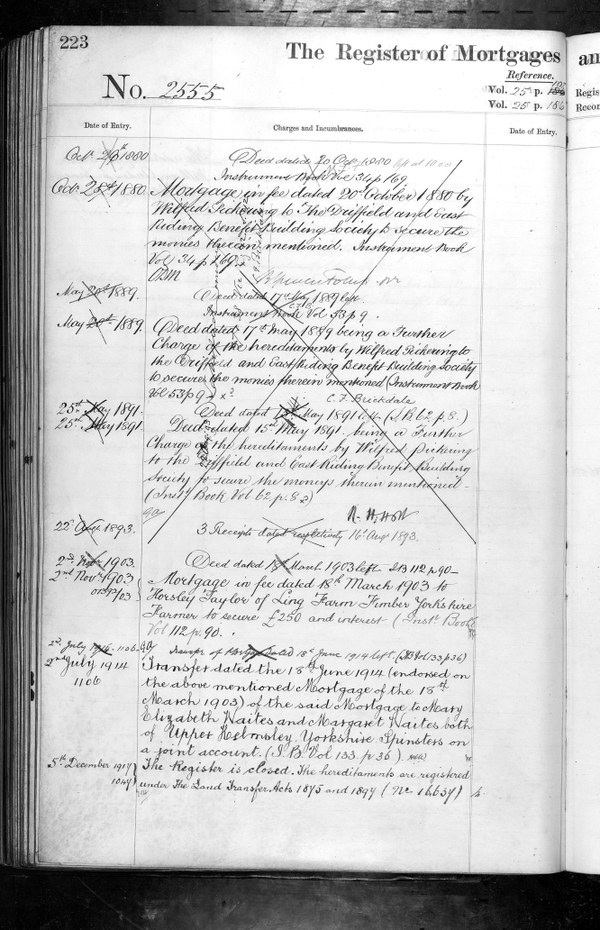 223
The Register of Mortgages an
Reference.
No. 2555
Vol. 25 p.
Vol. 25 p. 186
Regis
Recor
Date of Entry.
Charges and Incumbrances.
Date of Entry.
Octr 29th 1880
Deed dated 20 Octr 1880
Instrument Book Vol 34 p 169
Octr 28th 1880
Mortgage in fee dated 20th October 1880 by
Wilfred Pickering to The Driffield and East
Riding Benefit Building Society to Secure the
monies therein mentioned. Instrument Book
Vol 34 p 169
May 20th 1889.
Deed dated 17th May 1889 left
Instrument Book Vol 53 p 9.
May 20th 1889.
Deed dated 17th May 1889 being a Further
Charge of the hereditaments by Wilfred Pickering to
the Driffield and East Riding Benefit Building Society
to secure the monies therein mentioned (Instrument Book
Vol 53 p 9
C. F. Brickdale
25th May 1891.
Deed dated 15th May 1891 left (I.B. 62, p. 8.)
25th May 1891
Deed dated 15th May 1891 being a Further
Charge of the hereditaments by Wilfred Pickering
to the Driffield and East Riding Benefit Building
Society to secure the moneys therein mentioned
(Instt Book Vol 62 p. 8
22 Augt 1893.
3 Receipts dated respectively 16th Augt 1893.
2nd Novr 1903.
Deed dated 18th March 1903 left IB 112 p 90
2nd Novr 1903
Mortgage in fee dated 18th March 1903 to
Horsley Taylor of Ling Farm Yorkshire
Farmer to secure £250 and interest (Instt Book
Vol 112 p. 90.
2nd July 1914 1106
Transfer of Mortge dated 18th June 1914 left (IB Vol 133 p 36)
2nd July 1914
1106
Transfer dated the 18th June 1914 (endorsed on
the above mentioned Mortgage of the 18th
March 1903) of the said Mortgage to Mary
Elizabeth Waites and Margaret Waites both
of Upper Helmsley, Yorkshire Spinsters on
a joint account. (I. B. Vol 133. p 36)
5th December 1917
1047
The Register is closed. The hereditaments are registered
under The Land Transfer Acts 1875 and 1897 (No 16637)